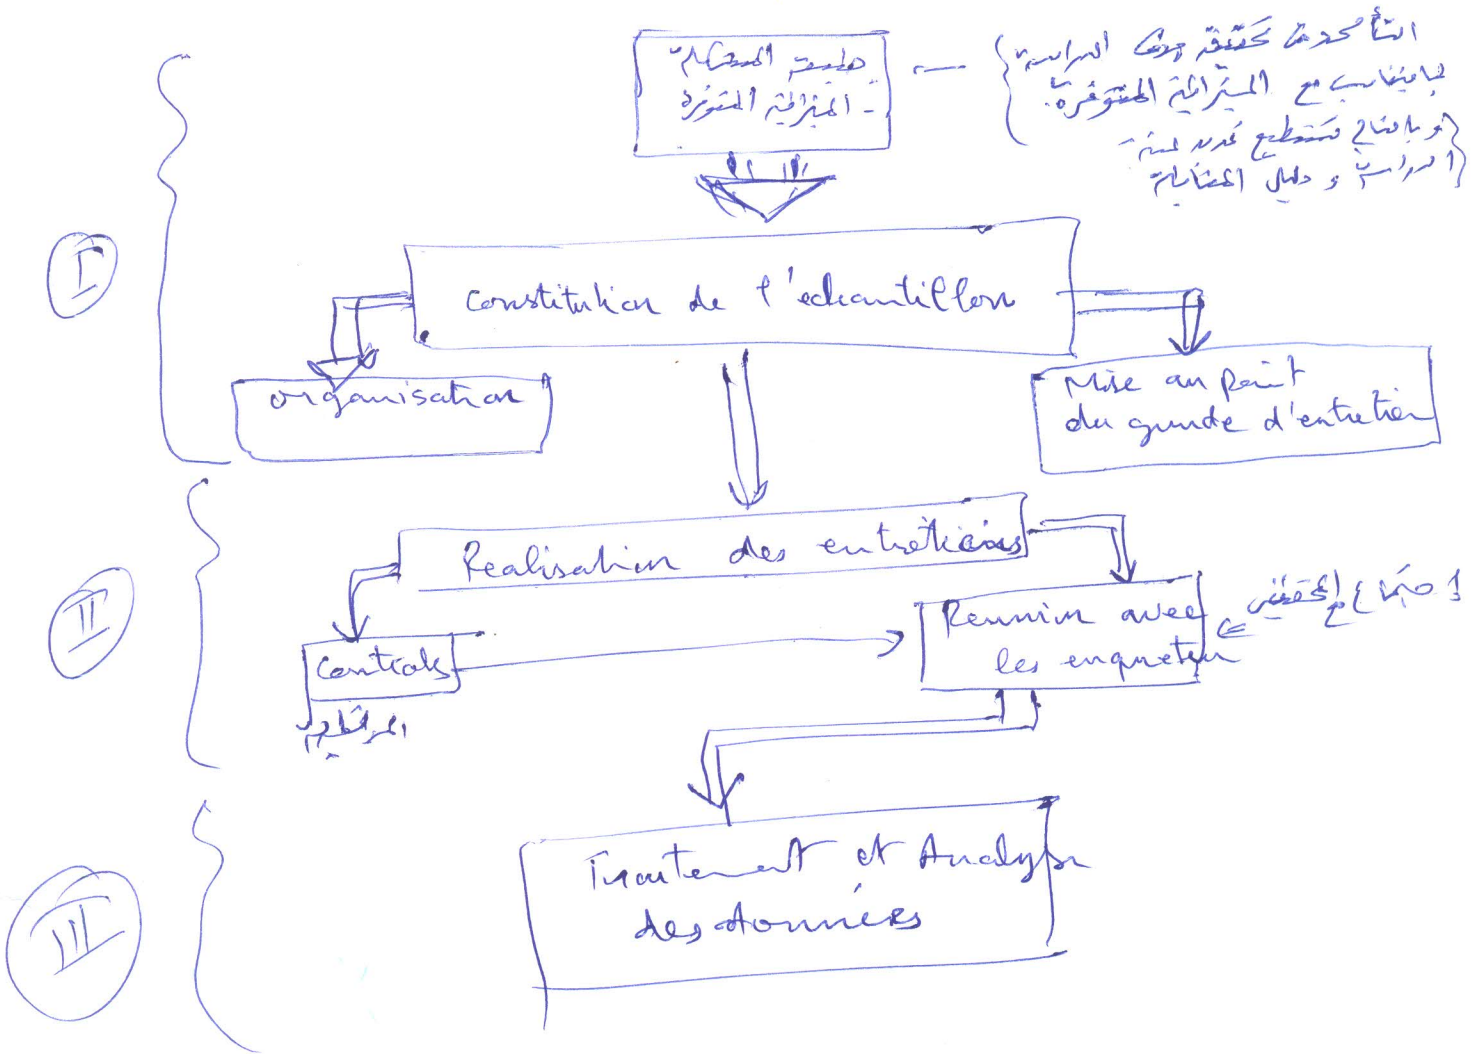 طبيعة المشكلة
- الميزانية المتوفرة
هدف الدراسة
مع الميزانية المتوفرة
و دليل المقابلة
I
Constitution de l'échantillon
organisation
Mise au point
du guide d'entretien
II
Realisation des entretiens
Controls
المراقبة
Reunion avec
les enqueteur
اجتماع مع المحققين
III
Traitement et Analyse
des données